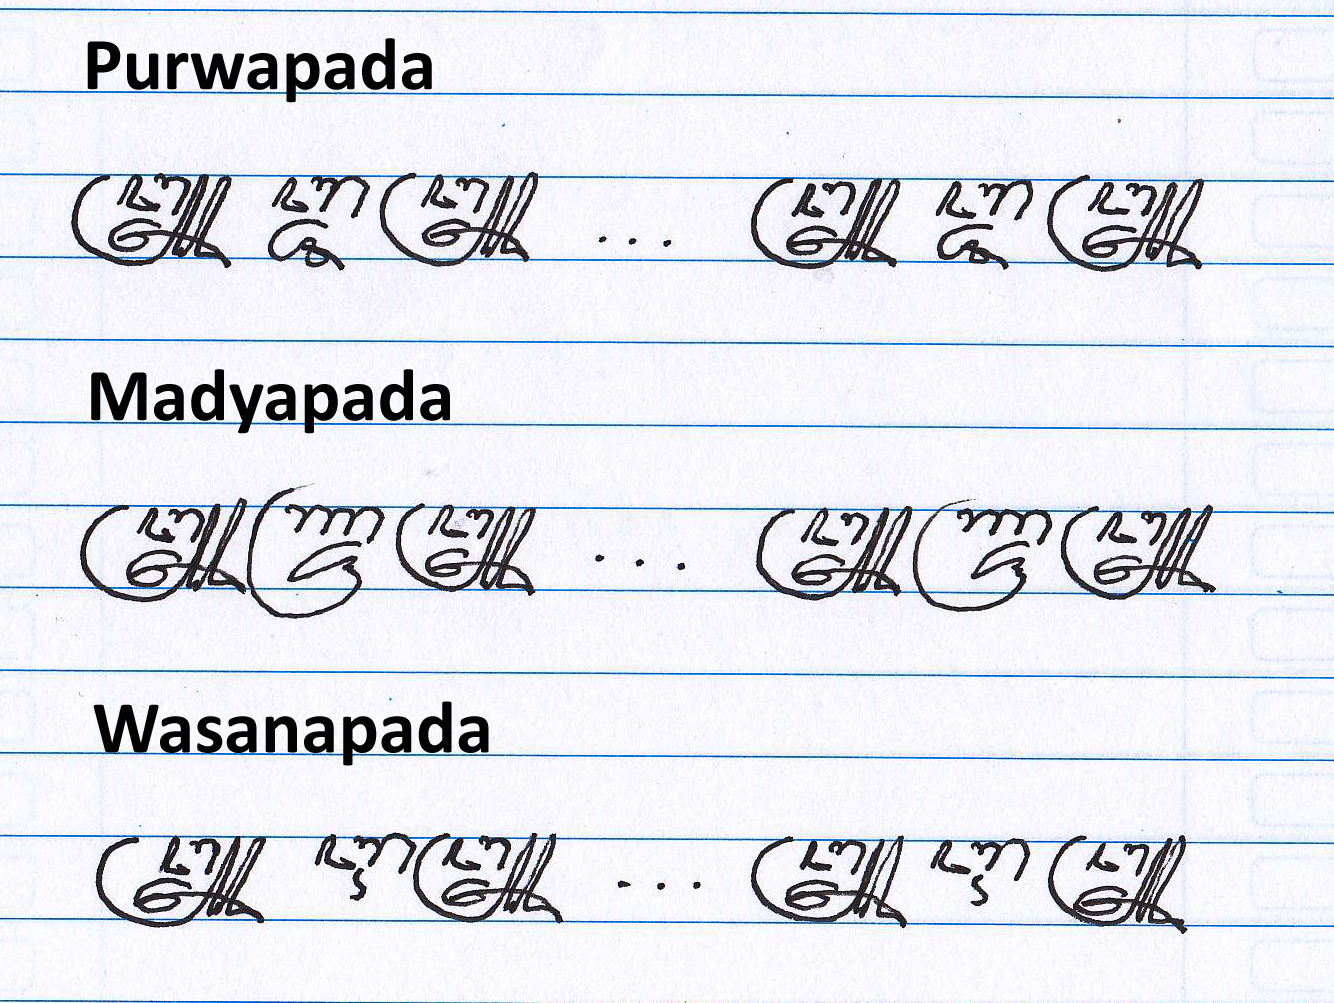 Purwapada
꧅ ꦧ꧀ꦖ ꧅ ... ꧅ ꦧ꧀ꦖ ꧅
Madyapada
꧅ ꦟ꧀ꦢꦿ ꧅ ... ꧅ ꦟ꧀ꦢꦿ ꧅
Wasanapada
꧅ ꦆ ꧅ ... ꧅ ꦆ ꧅